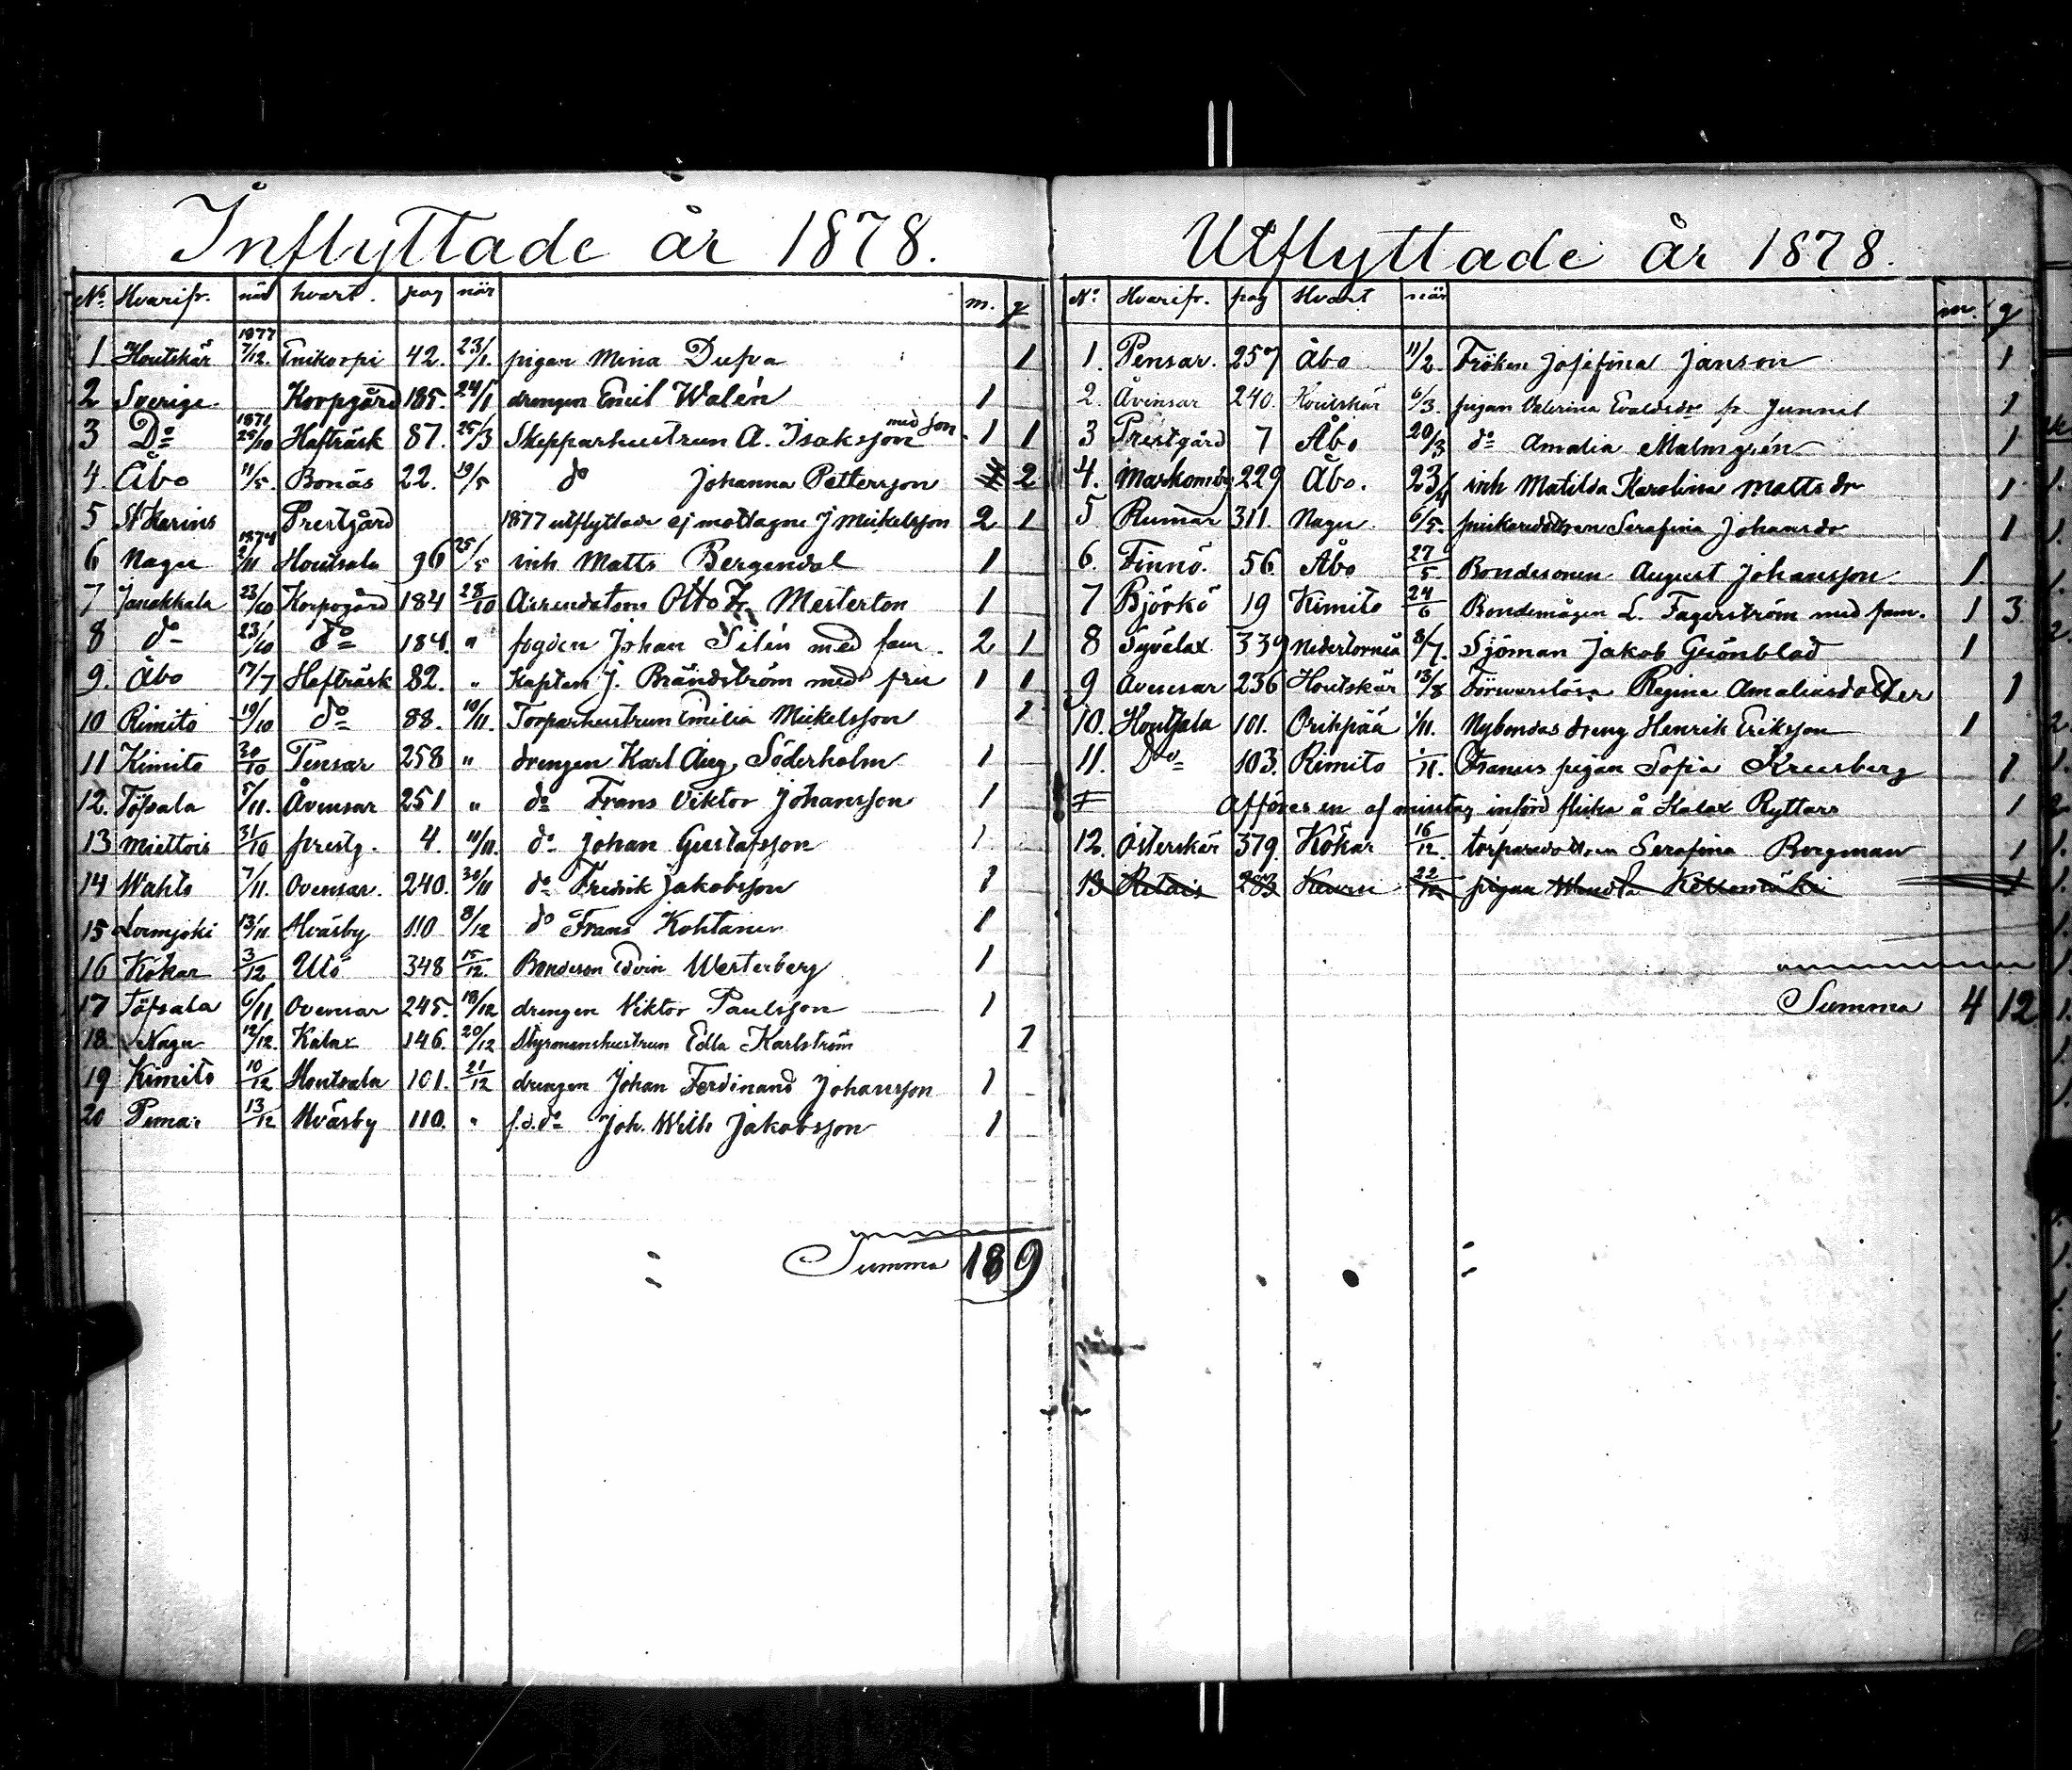 Inflyttade år 1878.
No. Hvarifr. när hvart. pag när m. q
1877
1 Houtskär 7/12. Enikorpi 42. 23/1. pigan Mina Dufva 1
2 Sverige Korpgård 185. 24/1 drengen Emil Walén 1
1871 med son
3 Do 25/10 Hafträsk 87. 25/3 Skepparhustrun A. Isaksson 1 1
4. Åbo 11/5. Bonäs 22. 19/5 do Johanna Pettersson 2
5 St Karins Prestgård 1877 utflyttade ej mottagne J Mickelsson 2 1
6 Nagu 2/11 Houtsala 96 25/5 inh Matts Bergendal 1
7 Janakkala 23/10 Korpogård 184 28/10 Arrendatorn Otto Fr. Mesterton 1
8 do 23/10 do 184. " fogden Johan Silén med fam. 2 1
9. Åbo 17/7 Hafträsk 82. " Kapten J. Brändström med fru 1 1
10 Rimito 19/10 do 88. 10/11. Torparhustrun Emilia Mickelsson 1
11 Kimito 30/10 Pensar 258 " drengen Karl Aug. Söderholm 1
12. Töfsala 5/11. Åvensar 251 " do Frans Viktor Johansson 1
13 Miettois 31/10 prestg. 4. 11/11. do Johan Gustafsson 1
14 Wahto 7/11. Ovensar. 240. 30/11 do Fredrik Jakobsson 1
15 Loimjoki 13/11 Hväsby 110 8/12 do Frans Kohtanen 1
16 Kökar 3/12 Utö 348 15/12. Bondeson Edvin Westerberg 1
17 Töfsala 6/11 Ovensar 245. 18/12 drengen Viktor Paulsson 1
18. Nagu 12/12. Kalax 146. 20/12 Styrmanshustrun Edla Karlström 1
19 Kimito 10/12 Houtsala 101. 21/12 drengen Johan Ferdinand Johansson 1
20 Pemar 13/12 Hväsby 110. " f.d. do Joh. Wilh Jakobsson 1
Summa 18 9
Utflyttade år 1878.
No. Hvarifr. pag Hvart när m. q
1. Pensar. 257 Åbo 11/2. Fröken Josefina Janson 1
2. Åvensar 240. Houtskär 6/3. pigan Valerina Evaldsdr fr. Junnal 1
3 Prestgård 7 Åbo 20/3 do Amalia Malmgrén 1
4. Markomby 229 Åbo. 23/4 inh Matilda Karolina Mattsdr 1
5 Rumar 311. Nagu 6/5. Serafina Johansdr 1
6. Finnö. 56. Åbo 27/5. Bondesonen August Johansson 1.
7 Björkö 19 Kimito 24/6 Bondemågen L. Fagerström med fam. 1 3
8 Syvälax 339 Nedertorneå 8/7. Sjöman Jakob Grönblad 1
9 Avensar 236 Houtskär 13/8 Förwarslösa Regina Amaliasdotter 1
10. Houtsala 101. Orihpää 1/11. Nybondas dreng Henrik Eriksson 1
11. Do 103. Rimito 1/11. Franus pigan Sofia Kreusberg 1
Afföres en af misstag införd flicka å Kalax Ryttars 1
12. Österskär 379. Kökar 16/12. torparedottren Serafina Borgman 1
13 Retais 283 22/12 pigan 1
Summa 4 12